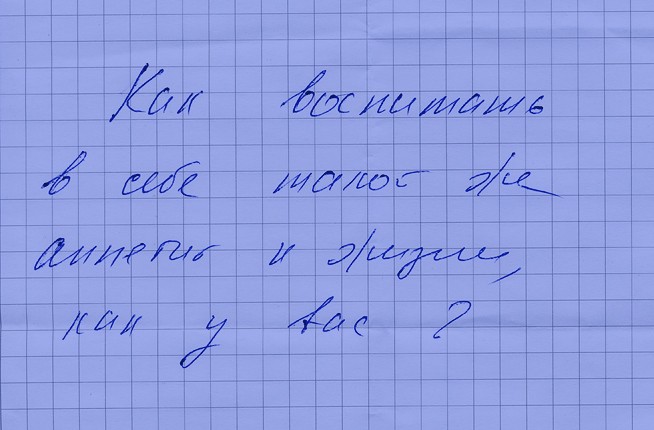 Как воспитать
в себе такой же
аппетит к жизни,
как у вас ?